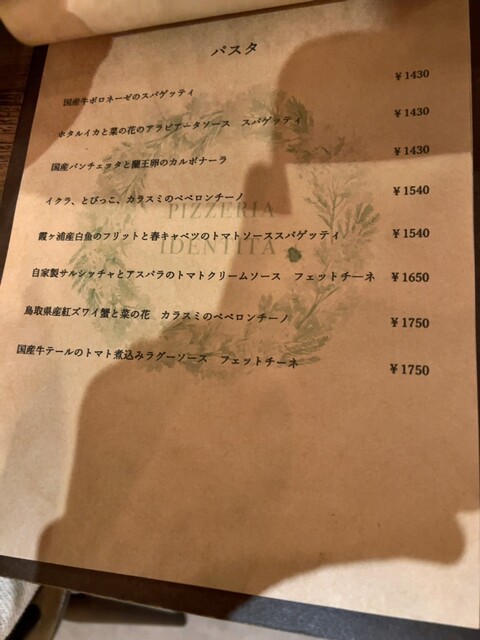 パスタ
国産牛ボロネーゼのスパゲッティ ￥1430
ホタルイカと菜の花のアラビアータソース スパゲッティ ￥1430
国産パンチェッタと蘭王卵のカルボナーラ ￥1430
イクラ、とびっこ、カラスミのペペロンチーノ ￥1540
PIZZERIA
霞ヶ浦産白魚のフリットと春キャベツのトマトソーススパゲッティ ￥1540
IDENTITA
自家製サルシッチャとアスパラのトマトクリームソース フェットチーネ ￥1650
鳥取県産紅ズワイ蟹と菜の花 カラスミのペペロンチーノ ￥1750
国産牛テールのトマト煮込みラグーソース フェットチーネ ￥1750